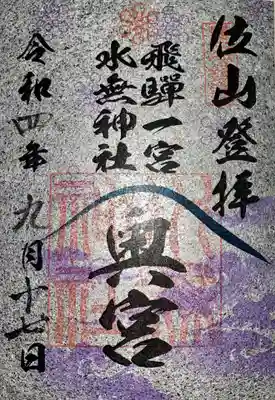 位山登拝
飛驒一宮
水無神社
奥宮
令和四年 九月十七日